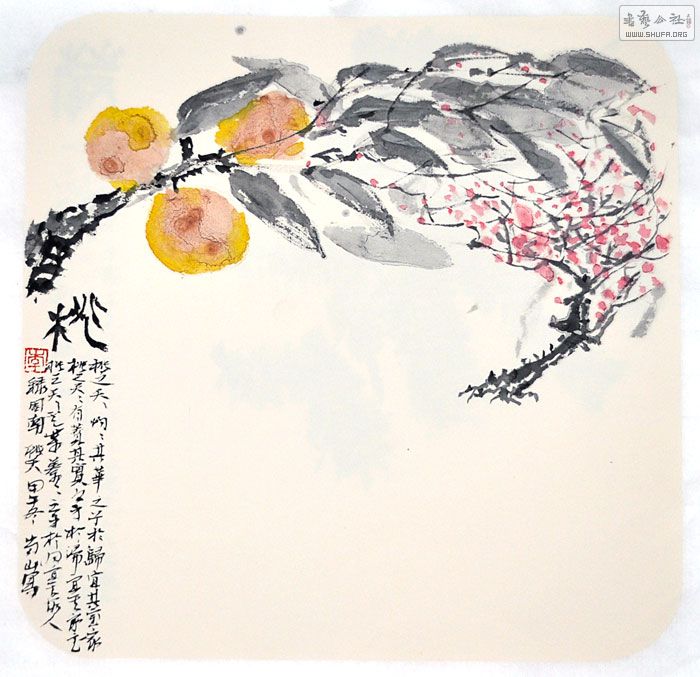 書藝公社
WWW.SHUFA.ORG
桃
桃之夭、灼、其華之子於歸宜其室家
桃之夭、有蕡其實之子於歸宜其家室
桃之夭、其葉蓁、之子於歸宜其家人
錄周南 桃夭 甲午冬 山寫